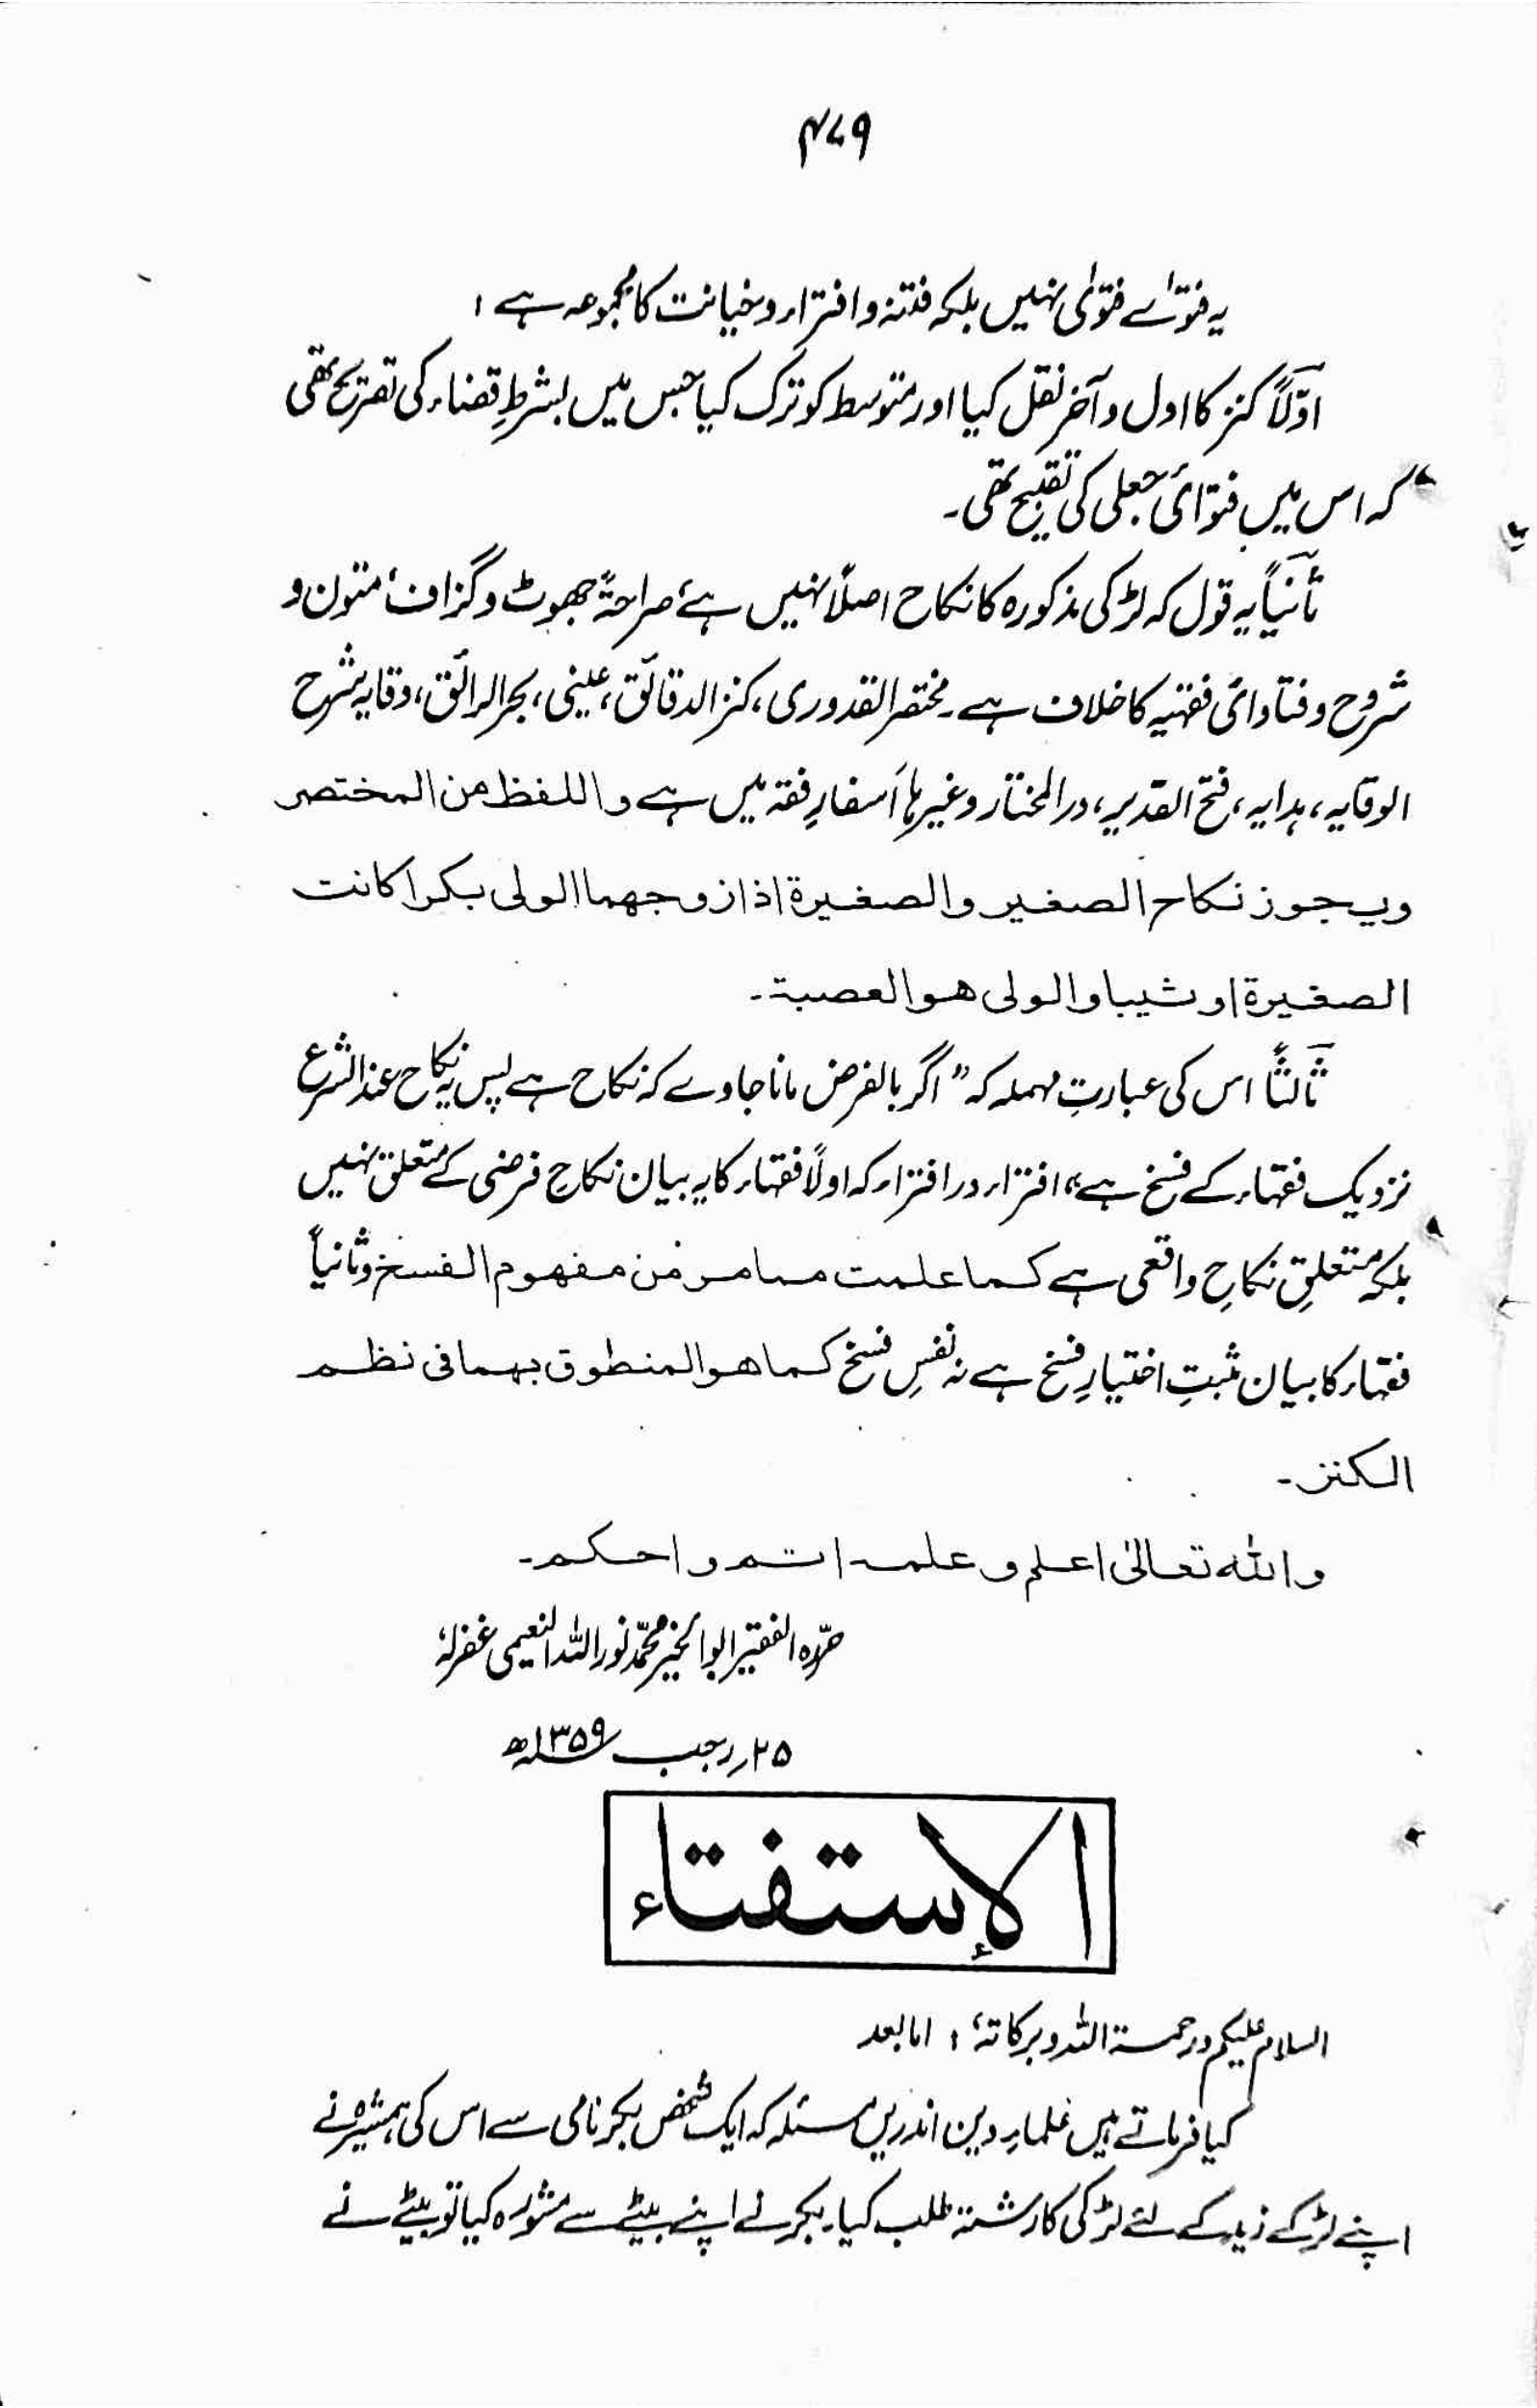 ۴۷۹
یہ فتوٰے فتوٰی نہیں بلکہ فتنہ و افتراء و خیانت کا مجموعہ ہے؛
اوّلاً کنز کا اول و آخر نقل کیا اور متوسط کو ترک کیا جس میں بشرطِ قضاء کی تصریح تھی
کہ اس میں فتوٰائ جعلی کی تقبیح تھی۔
ثانیاً یہ قول کہ لڑکی مذکورہ کا نکاح اصلاً نہیں ہے صراحۃً جھوٹ و گزاف، متون و
شروح و فتاوائ فقہیہ کا خلاف ہے۔ مختصر القدوری، کنز الدقائق، عینی، بحر الرائق، وقایہ شرح
الوقایہ، ہدایہ، فتح القدیر، در المختار وغیرہا اَسفارِ فقہ میں ہے واللفظ من المختصر
ویجوز نکاح الصغیر والصغیرۃ اذا زوجھما الولی بکرا کانت
الصغیرۃ او ثیبا والولی ھو العصبۃ۔
ثالثاً اس کی عبارتِ مہملہ کہ "اگر بالفرض مانا جاوے کہ نکاح ہے پس یہ نکاح عند الشرع
نزدیک فقہاء کے فسخ ہے"، افتراء در افتراء کہ اولاً فقہاء کا یہ بیان نکاحِ فرضی کے متعلق نہیں
بلکہ متعلقِ نکاحِ واقعی ہے کما علمت مما مر من مفھوم الفسخ وثانیاً
فقہاء کا بیان مثبتِ اختیارِ فسخ ہے نہ نفسِ فسخ کما ھو المنطوق بھما فی نظم
الکنز۔
واللہ تعالیٰ اعلم وعلمہ اتم واحکم۔
حرّرہ الفقیر ابوالخیر محمّد نور اللہ النعیمی غفرلہٗ
۲۵؍ رجب ۱۳۵۹ھ
الإستفتاء
السلام علیکم ورحمۃ اللہ وبرکاتہٗ؛ اما بعد
کیا فرماتے ہیں علماءِ دین اندریں مسئلہ کہ ایک شخص بکر نامی سے اس کی ہمشیرہ نے
اپنے لڑکے زید کے لئے لڑکی کا رشتہ طلب کیا۔ بکر نے اپنے بیٹے سے مشورہ کیا تو بیٹے نے